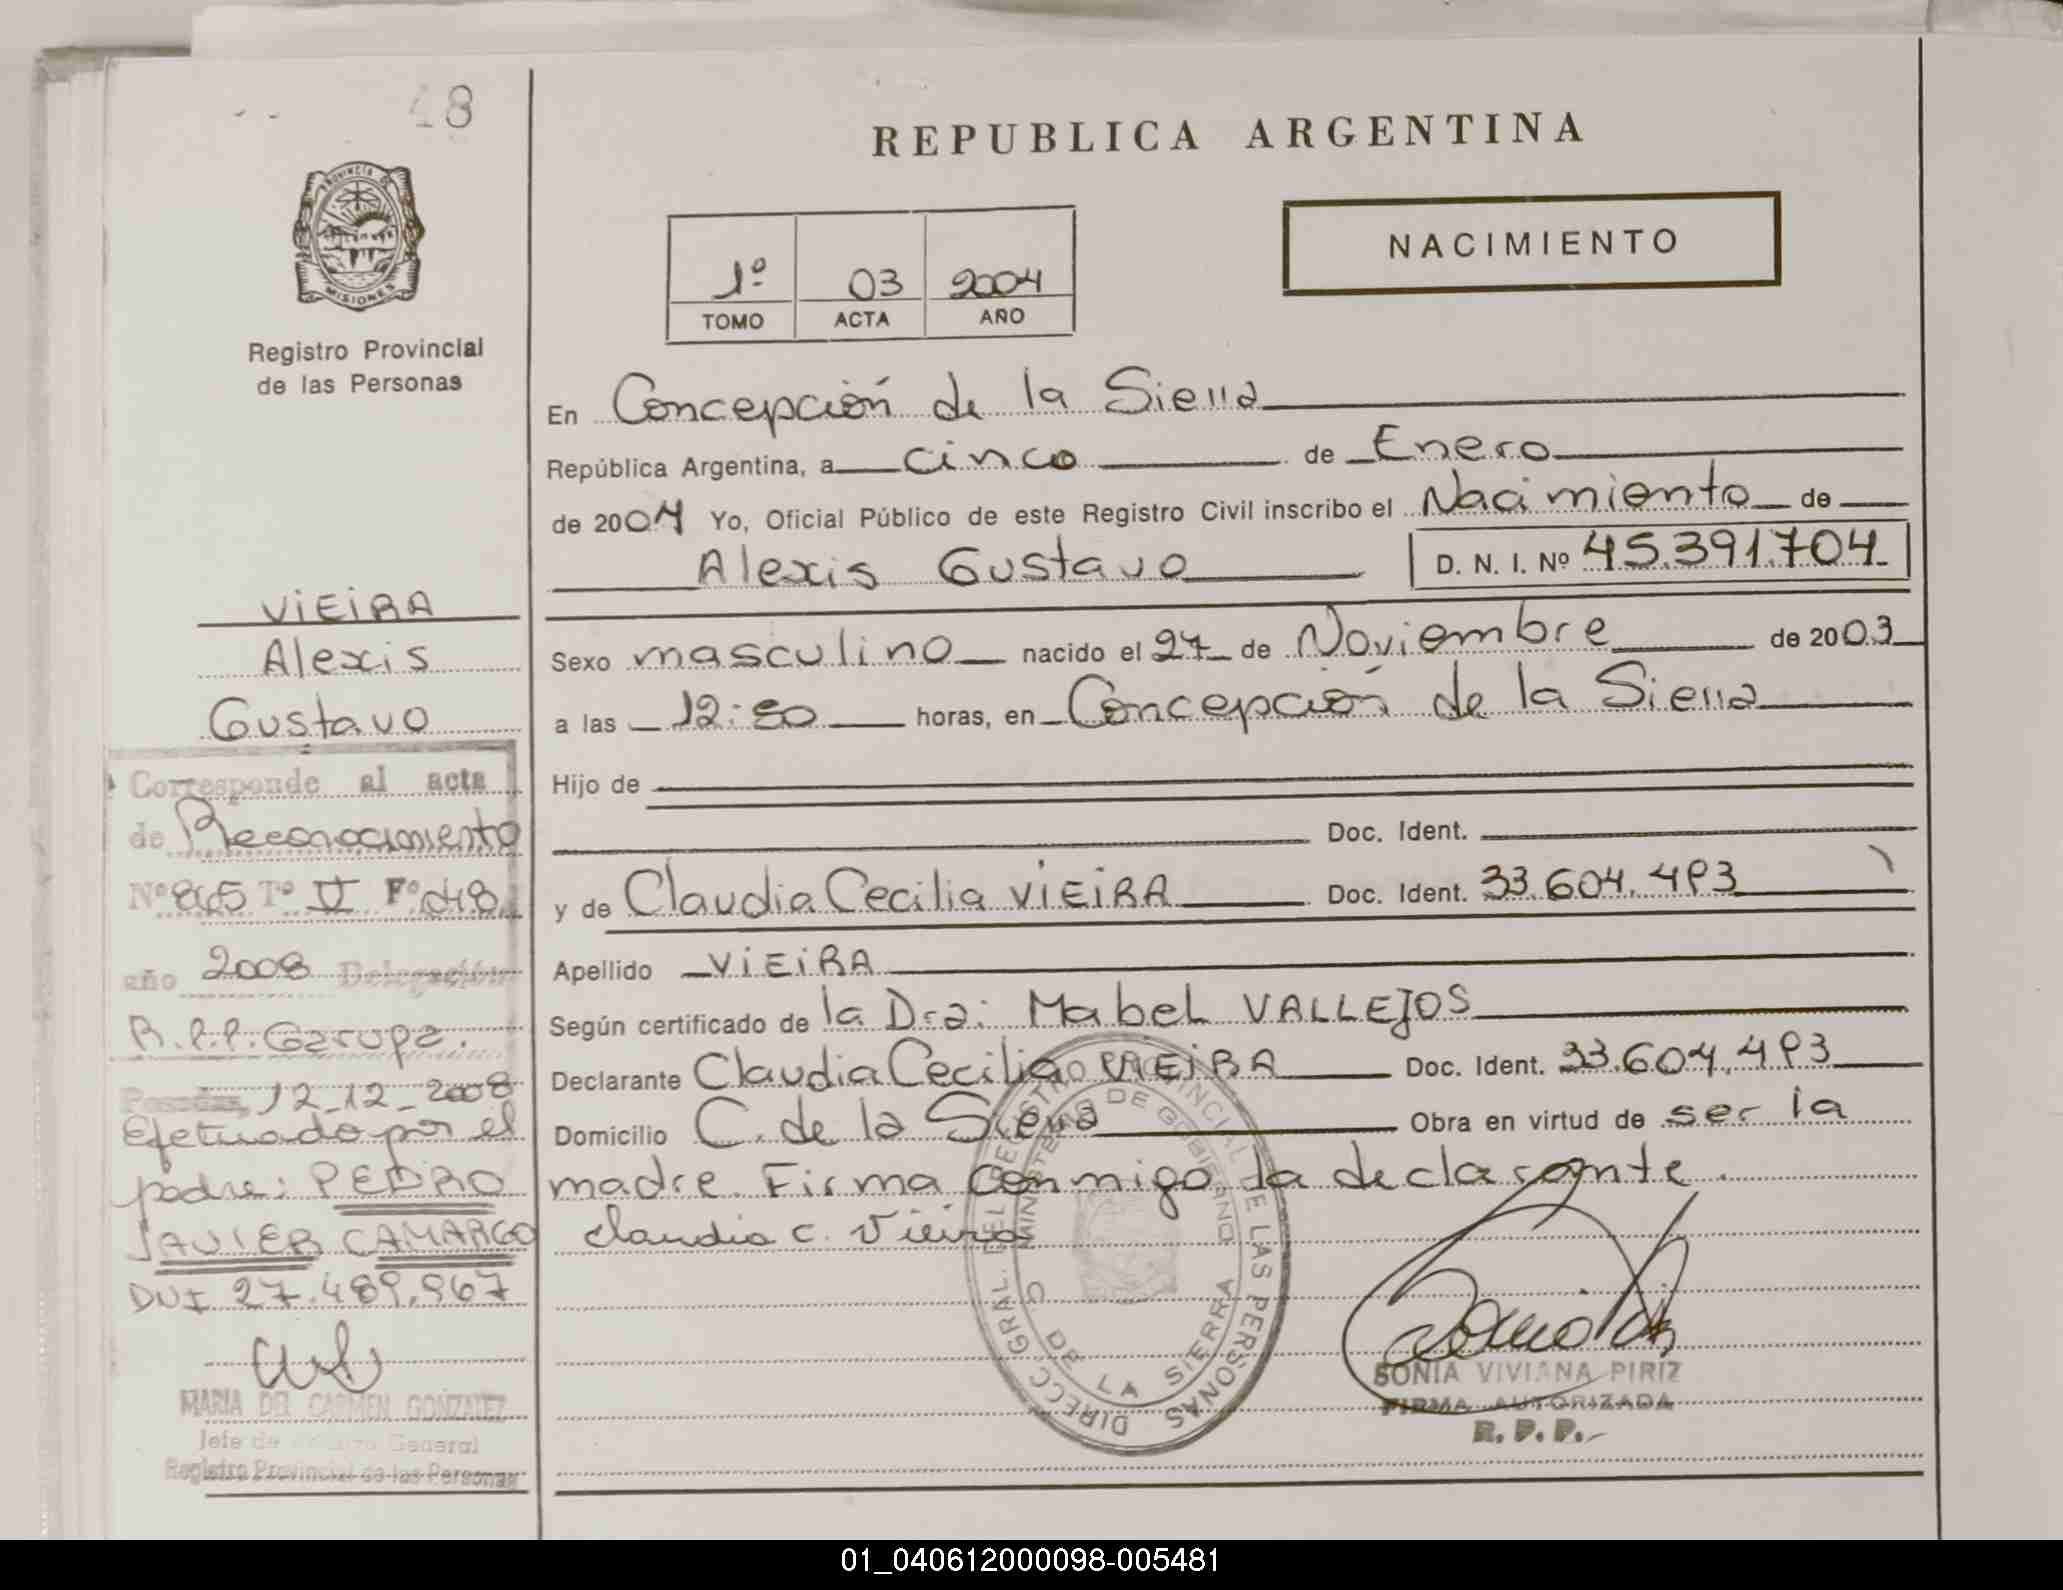 48
PROVINCIA DE
MISIONES
Registro Provincial
de las Personas
VIEIRA
Alexis
Gustavo
Corresponde al acta
de Reconocimiento
Nº 865 Tº V Fº 48
año 2008 Delegación
R.P.P. Garupa.
Posadas, 12-12-2008
Efetuado por el
padre: PEDRO
JAVIER CAMARGO
DNI 27.489.967
MARIA DEL CARMEN GONZALEZ
Jefe de General
Registro Provincial de las Personas
REPUBLICA ARGENTINA
NACIMIENTO
1º 03 2004
TOMO ACTA AÑO
En Concepción de la Sierra
República Argentina, a cinco de Enero
de 2004 Yo, Oficial Público de este Registro Civil inscribo el Nacimiento de
Alexis Gustavo D. N. I. Nº 45.391.704
Sexo masculino nacido el 27 de Noviembre de 2003
a las 12: horas, en Concepción de la Sierra
Hijo de
Doc. Ident.
y de Claudia Cecilia VIEIRA Doc. Ident. 33.604.493
Apellido VIEIRA
Según certificado de la Dra: Mabel VALLEJOS
Declarante Claudia Cecilia VIEIRA Doc. Ident. 33.604.493
Domicilio C. de la Sierra Obra en virtud de ser la
madre. Firma conmigo la declarante.
Claudia C. Vieira
DIRECC GRAL. DEL REGISTRO PROVINCIAL DE LAS PERSONAS
MINISTERIO DE GOBIERNO
C DE LA SIERRA
SONIA VIVIANA PIRIZ
FIRMA AUTORIZADA
R. P. P.
01_040612000098-005481